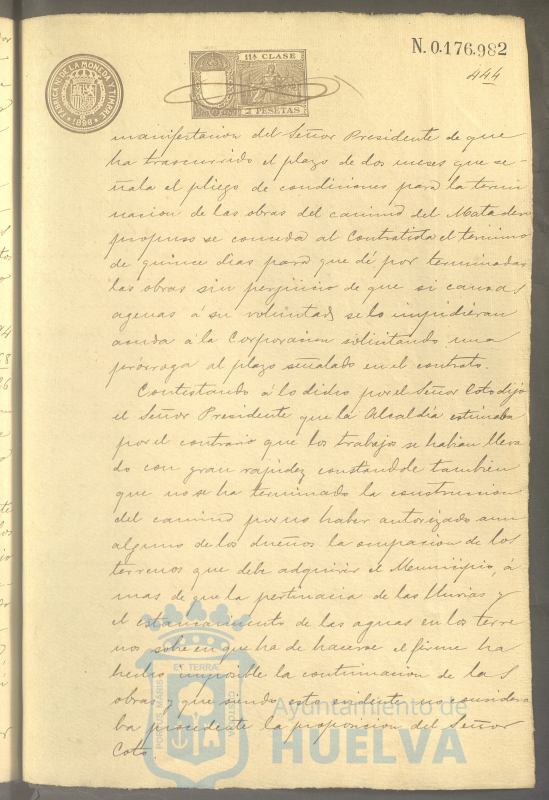 N. 0.176.982
444
FÁBRICA NL. DE LA MONEDA Y TIMBRE
1896
11ª CLASE
2 PESETAS
manifestacion del Señor Presidente de que
ha trascurrido el plazo de dos meses que se-
ñala el pliego de condiciones para la termi
nacion de las obras del camino del Matadero
propuso se conceda al Contratista el termino
de quince dias para que dé por terminadas
las obras sin perjuicio de que si causas
agenas á su voluntad se lo impidieran
acuda á la Corporacion solicitando una
prórroga al plazo señalado en el contrato.
Contestando á lo dicho por el Señor Coto dijo
el Señor Presidente que la Alcaldía estimaba
por el contrario que los trabajos se habian lleva
do con gran rapidez constándole tambien
que no se ha terminado la construccion
del camino por no haber autorizado aun
alguno de los dueños la ocupacion de los
terrenos que debe adquirir el Municipio, á
mas de que la pertinacia de las lluvias y
el estancamiento de las aguas en los terre
nos sobre en que ha de hacerse el firme ha
hecho imposible la continuacion de las
obras y que siendo esto evidente no considera
ba procedente la proposicion del Señor
Coto.
PORTUS MARIS
ET TERRAE
CUSTODIA
Ayuntamiento de
HUELVA